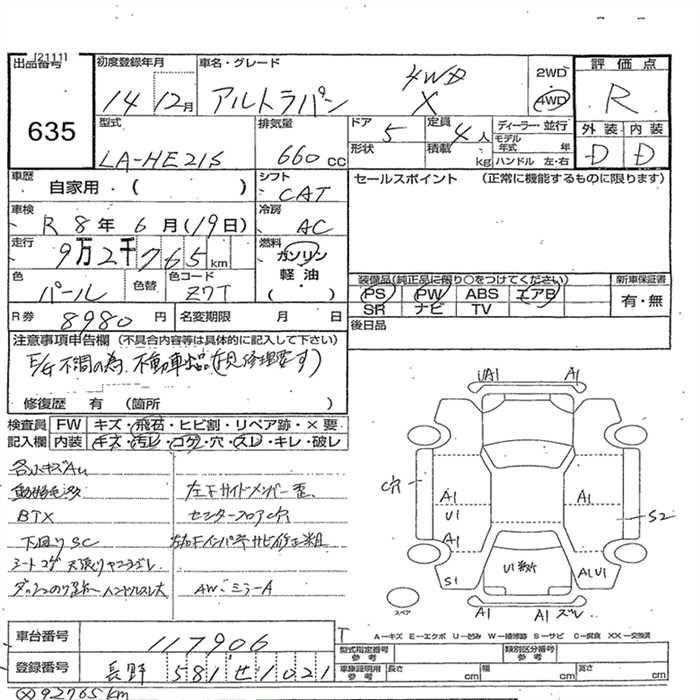 [2111]
出品番号
635
初度登録年月
14 12月
車名・グレード
アルトラパン
4WD
X
2WD
4WD
評価点
R
型式
LA-HE21S
排気量
660 cc
ドア
5
形状
定員
4人
積載
kg
ディーラー・並行
モデル年式 年
ハンドル 左・右
外装 内装
D D
車歴
自家用・( )
シフト
CAT
セールスポイント (正常に機能するものに限ります)
車検
R 8年 6月(19日)
冷房
AC
走行
9万2千765km
燃料
ガソリン
軽油
( )
色
パール
色替
色コード
Z7T
装備品(純正品に限り○をつけてください)
PS PW ABS エアB
SR ナビ TV
新車保証書
有・無
R券
8980円
名変期限 月 日
後日品
注意事項申告欄 (不具合内容等は具体的に記入して下さい)
E/G 不調の為、不動車出品(要修理要す)
修復歴 有 (箇所 )
検査員記入欄
FW キズ・飛石・ヒビ割・リペア跡・×要
内装 キズ・汚レ・コゲ・穴・スレ・キレ・破レ
各小キズAU
BTX
下回りSC
左F サイドメンバー歪
センターフロアC穴
AWミラーA
UA1 A1
C穴
A1 A1
U1
A1
S2
S1
A1U1
A1 A1 ズレ
スペア
A―キズ E―エクボ U―凹み W―補修跡 S―サビ C―腐食 XX―交換済
車台番号
117906
登録番号
長野 581 せ 1021
型式指定番号 参考
類別区分番号 参考
車庫証明用 参考
長さ cm
幅 cm
高さ cm
(X)92765km